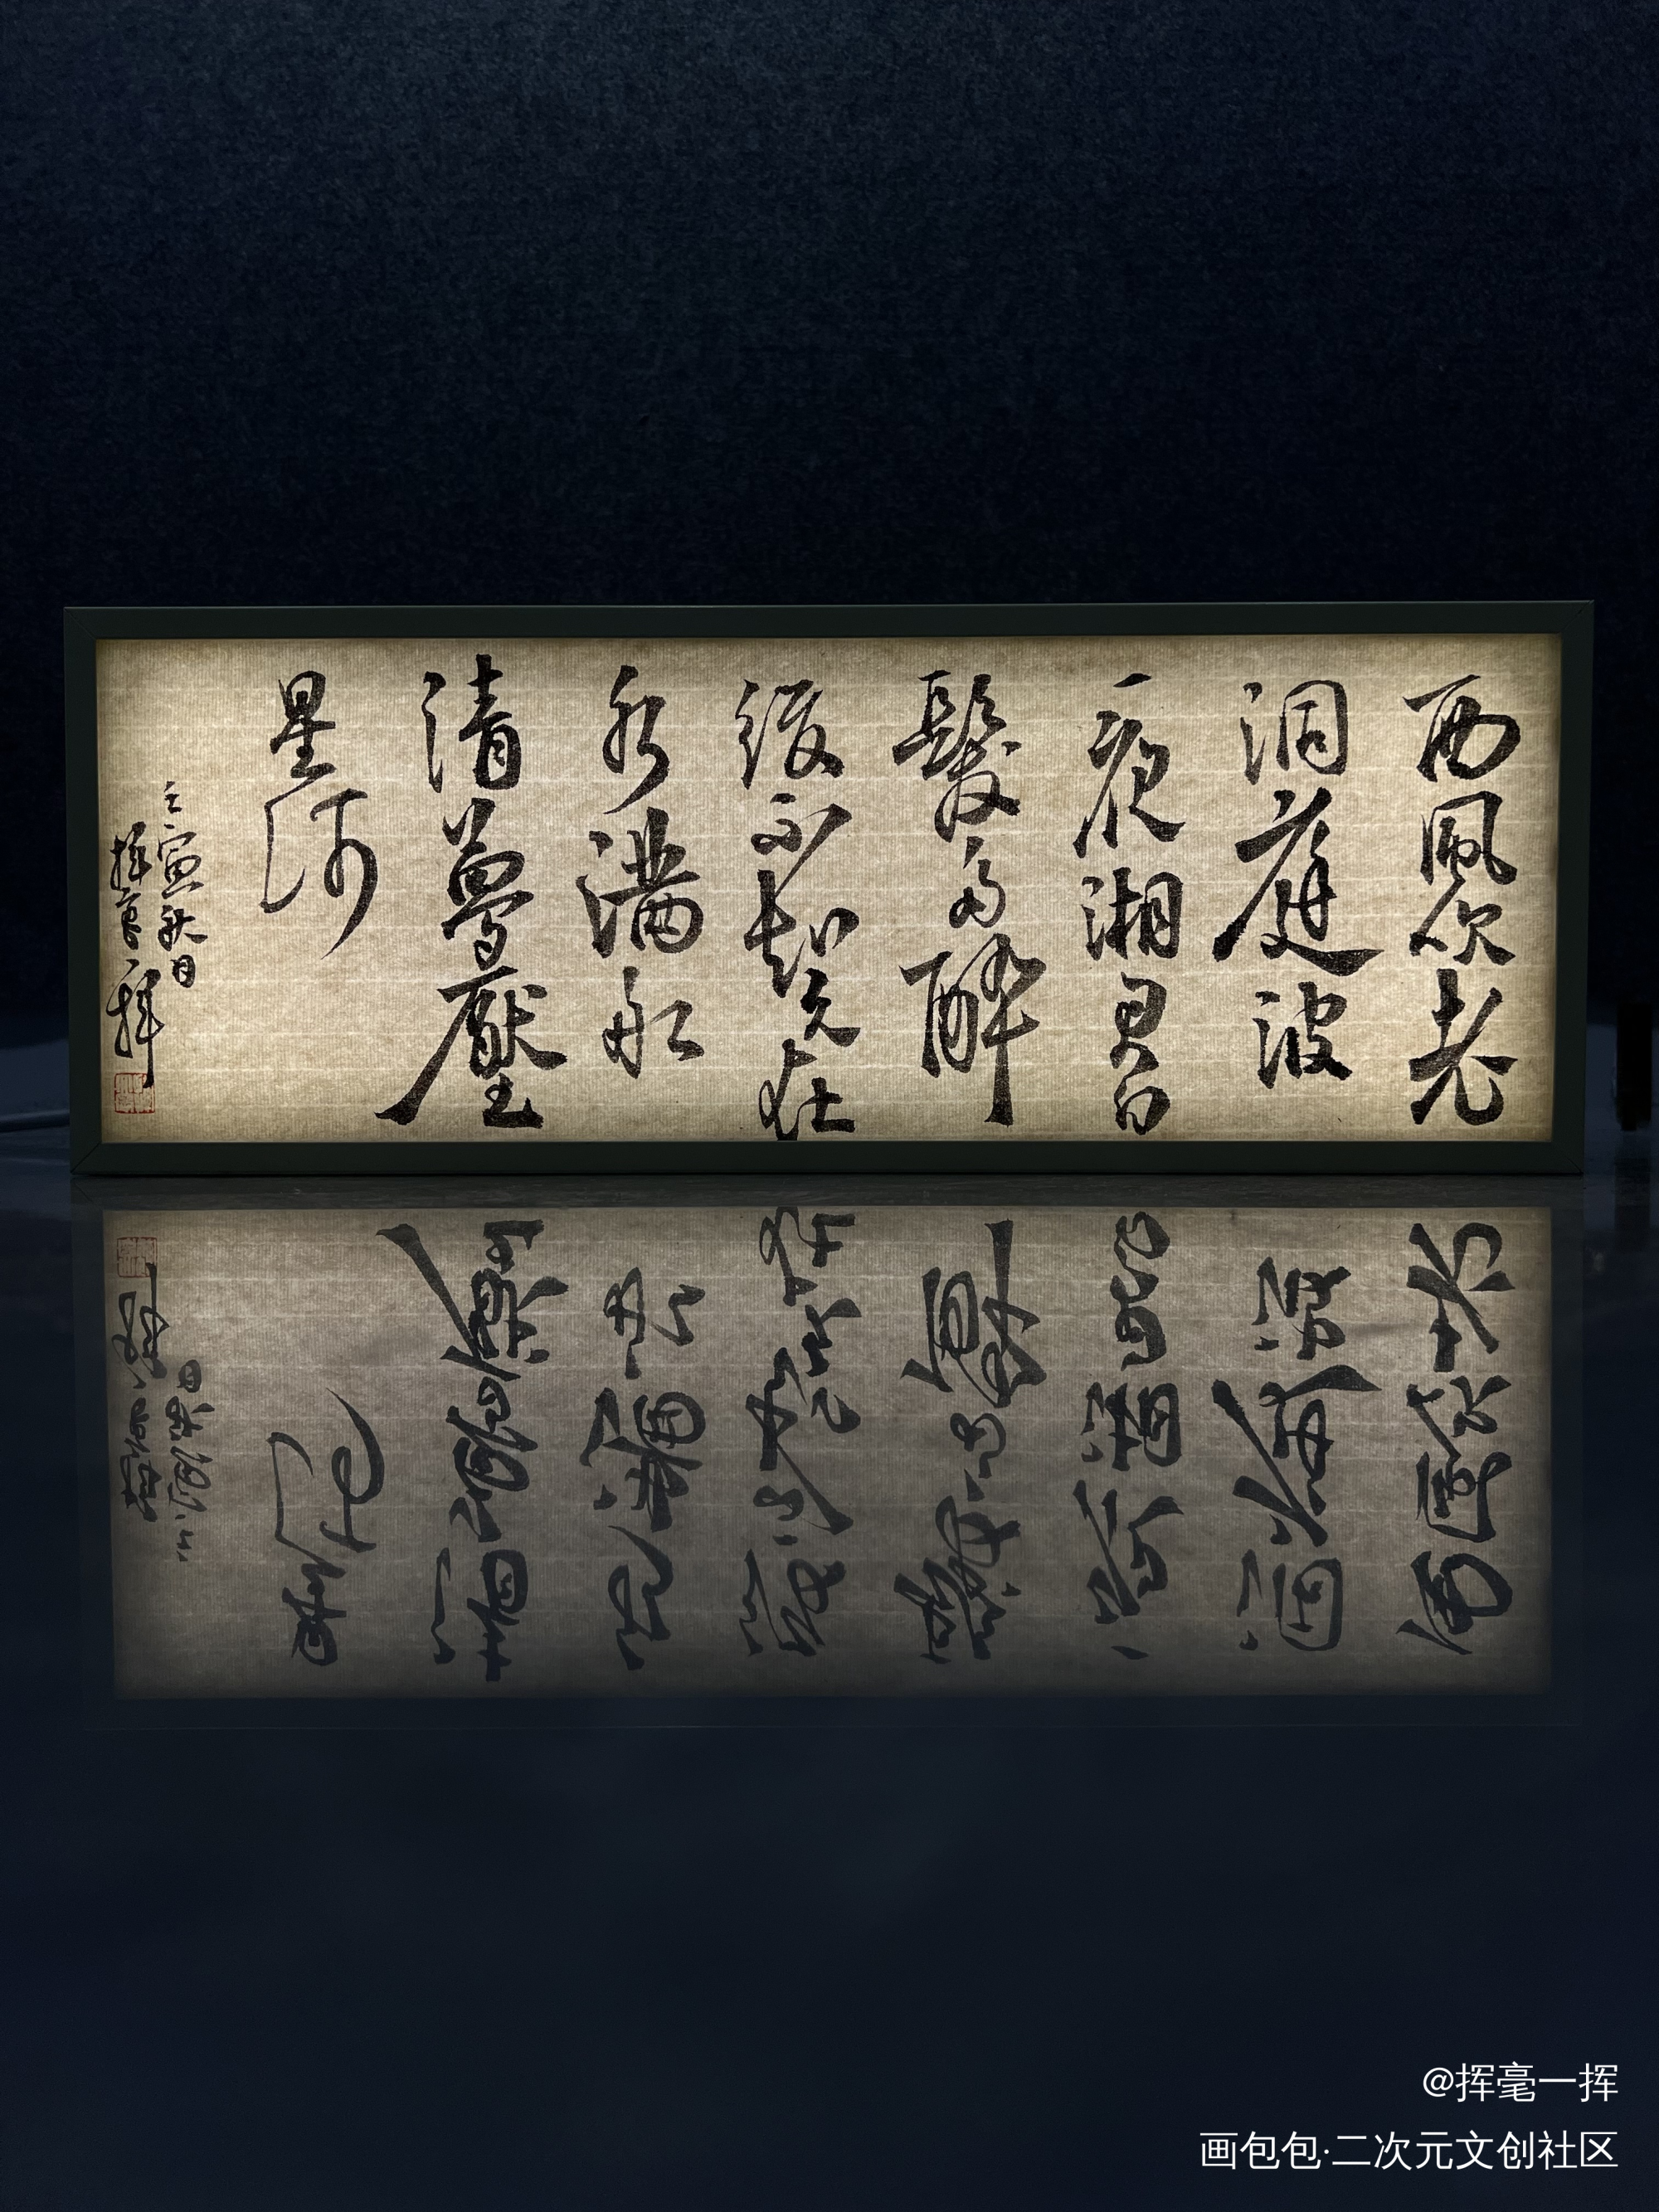 西風吹老
洞庭波
一夜湘君白
髮多醉
後不知天在
水滿船
清夢壓
星河
壬寅秋月
揮毫一揮
@挥毫一挥
画包包·二次元文创社区